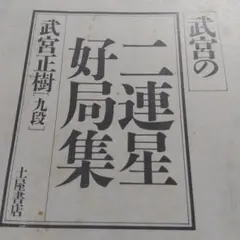 武宮の
二連星
好局集
武宮正樹[九段]
土屋書店